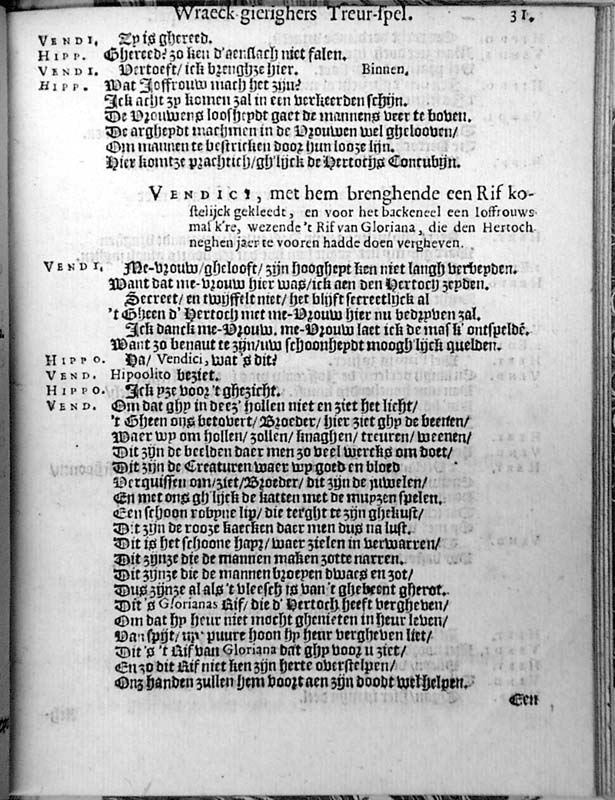 Wraeck-gierighers Treur-spel. 31.
VENDI. Zy is ghereed.
HIPP. Ghereed? zo ken d'aenslach niet falen.
VENDI. Vertoeft/ ick brenghze hier. Binnen.
HIPP. Wat Joffrouw mach het zijn?
Ick acht zy komen zal in een verkeerden schijn.
De Vrouwens loosheydt gaet de mannens veer te boven.
De argheydt machmen in de Vrouwen wel ghelooven/
Om mannen te bestricken door hun looze lijn.
Hier komtze prachtich/ gh'lijck de Hertochs Concubijn.
VENDICI, met hem brenghende een Rif ko-
stelijck gekleedt, en voor het backeneel een Ioffrouws
mas k're, wezende 't Rif van Gloriana, die den Hertoch
neghen jaer te vooren hadde doen vergheven.
VENDI. Me-vrouw/ ghelooft/ zijn hoogheyt ken niet langh verbeyden.
Want dat me-vrouw hier was/ ick aen den Hertoch zeyden.
Secreet/ en twijffelt niet/ het blijft secreetlijck al
't Gheen d' Hertoch met me-Vrouw hier nu bedryven zal.
Ick danck me-Vrouw. me-Vrouw laet ick de mas k' ontspeldē.
Want zo benaut te zijn/ uw schoonheydt moogh'lijck quelden.
HIPPO. Ha/ Vendici, wat 's dit?
VEND. Hipoolito beziet.
HIPPO. Ick yze voor 't ghezicht.
VEND. Om dat ghy in deez' hollen niet en ziet het licht/
't Gheen ons betovert/ Broeder/ hier ziet ghy de beenen/
Waer wy om hollen/ zollen/ knaghen/ treuren/ weenen/
Dit zijn de beelden daer men zo veel wercks om doet/
Dit zijn de Creaturen waer wy goed en bloed
Verquissen om/ ziet/ Broeder/ dit zijn de juwelen/
En met ons gh'lijck de katten met de muyzen spelen.
Een schoon robyne lip/ die terght te zijn ghekust/
Dit zijn de rooze kaecken daer men dus na lust.
Dit is het schoone hayr/ waer zielen in verwarren/
Dit zijnze die de mannen maken zotte narren.
Dit zijnze die de mannen broeyen dwaes en zot/
Dus zijnze al als 't vleesch is van 't ghebeent gherot.
Dit 's Glorianas Rif/ die d' Hertoch heeft vergheven/
Om dat hy heur niet mocht ghenieten in heur leven/
Van spijt/ uyt puure hoon hy heur vergheven liet/
Dit 's 't Rif van Gloriana dat ghy voor u ziet/
En zo dit Rif niet ken zijn herte overstelpen/
Onz handen zullen hem voort aen zijn doodt wel helpen.
Een